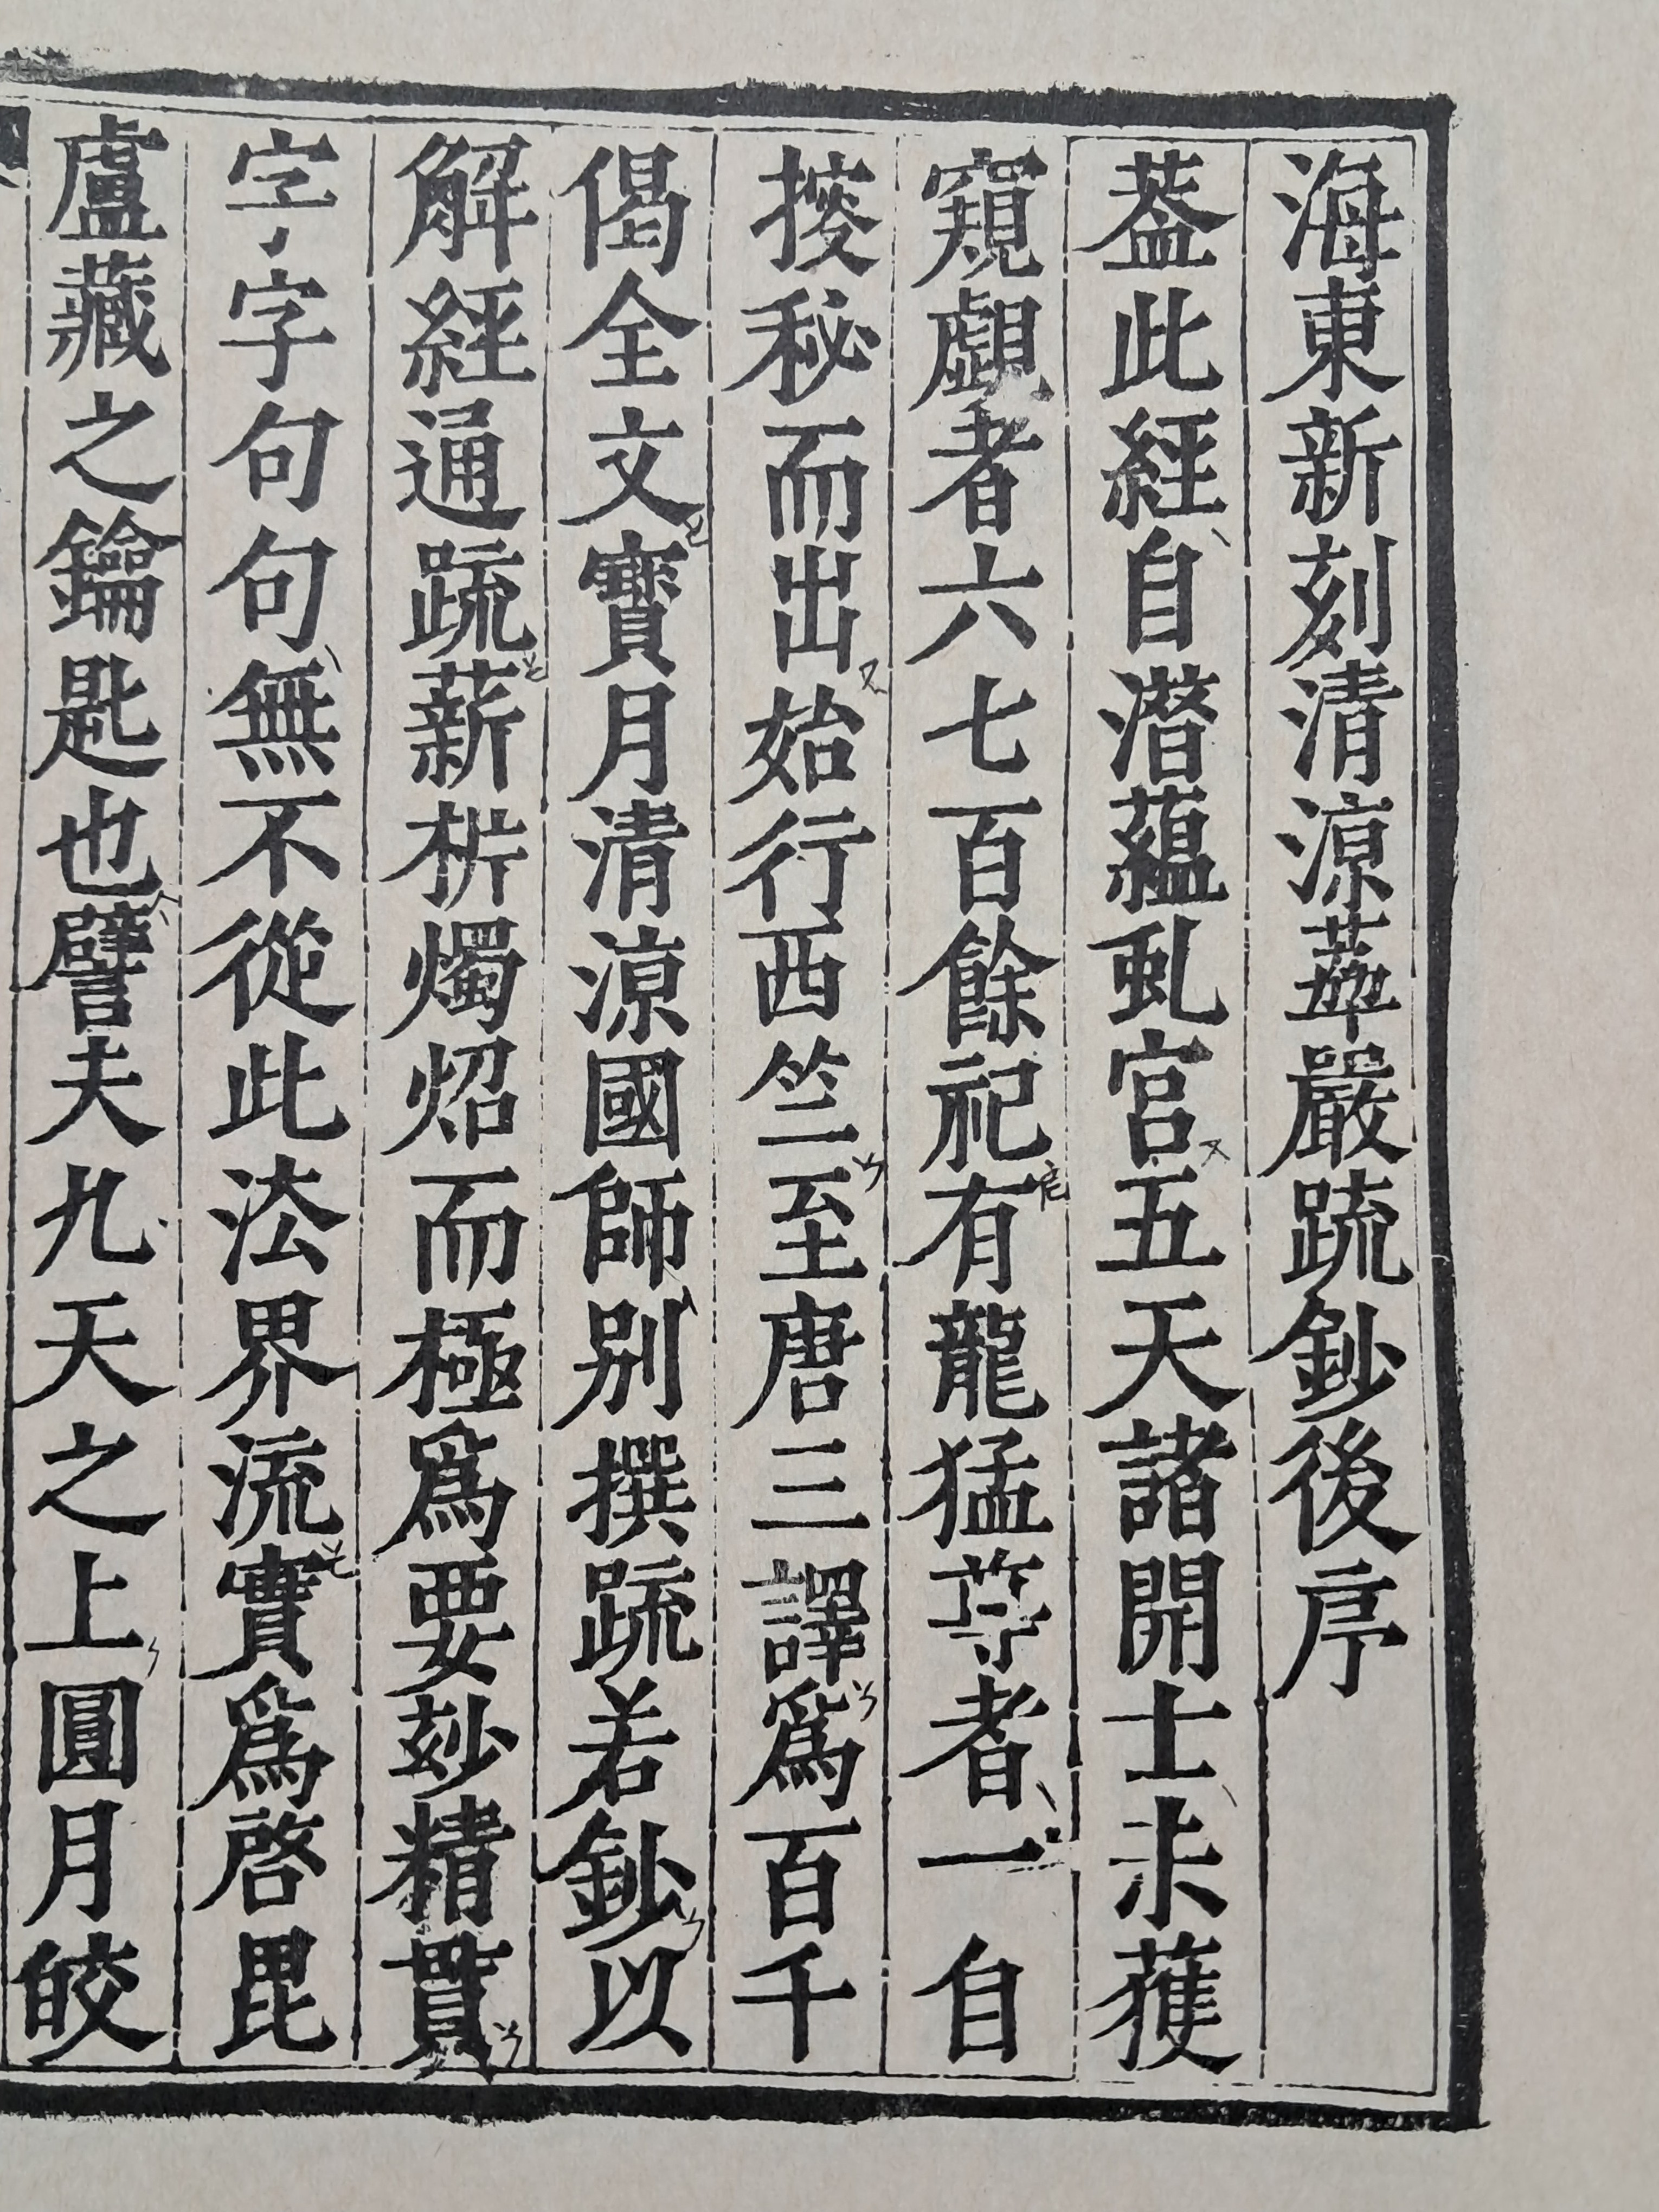 海東新刻清涼華嚴䟽鈔後序
葢此經自潛蘊虬宮五天諸開士未獲
窺覰者六七百餘祀有龍猛尊者一自
㨷秘而出始行西竺至唐三譯爲百千
偈全文寶月清涼國師別撰䟽若鈔以
解經通䟽薪析燭炤而極爲要玅精貫
字字句句無不從此法界流實爲啓毘
盧藏之鑰匙也譬夫九天之上圓月皎